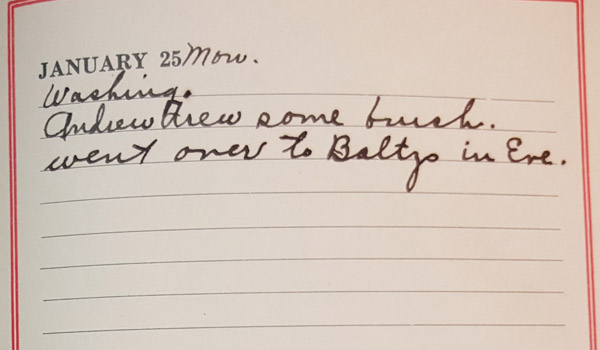 JANUARY 25 Mon.
Washing.
Andrew drew some brush.
went over to Baltzs in Eve.